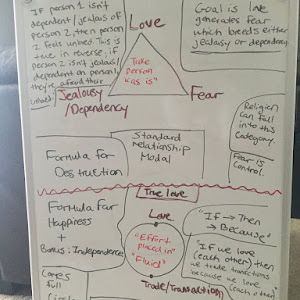 If person 1 isn't
dependent / jealous of
person 2, then person
2 feels unloved. This is
true in reverse; if
person 2 isn't jealous/
dependent on person 1,
they're afraid their
unloved
Love
Goal is love
generates Fear
which breeds either
jealousy or dependency
"Take
person
as is"
Jealousy
/Dependency
Fear
Religion
can fall
into this
Category.
Fear is
Control.
Standard
Relationship
Modal
Formula for
Destruction
True love
Formula For
Happiness
+
Bonus: Independence
Love
"Effort
placed in"
"Fluid"
Trade/Transaction
"If → Then
→ Because"
"If we love
(each other) then
we trade transactions
because we love
(each other)"
Full